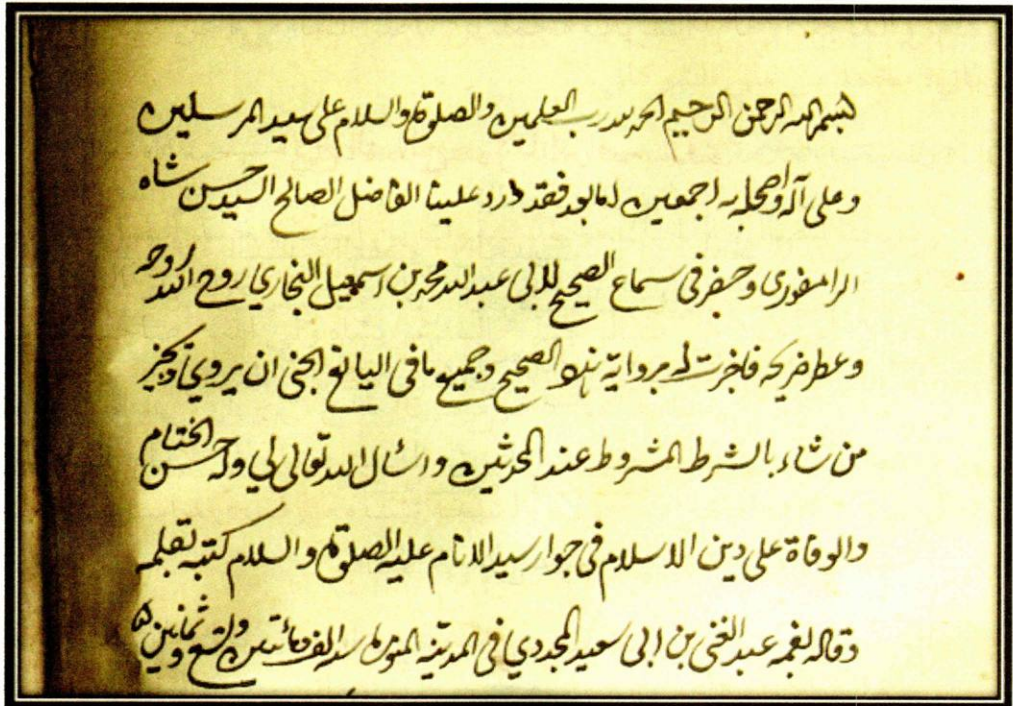 بسم الله الرحمن الرحيم الحمد لله رب العلمين والصلوة والسلام على سيد المرسلين
وعلى آله واصحابه اجمعين اما بعد فقد ورد علينا الفاضل الصالح السيد حسن شاه
الرامفوري وحضر في سماع الصحيح للابي عبد الله محمد بن اسمعيل البخاري روح الله روحه
وعطر ضريحه فاجزت له برواية هذا الصحيح وجميع ما في اليانع الجني ان يروي ويجيز
من شاء بالشرط المشروط عند المحدثين واسال الله تعالى لي وله حسن الختام
والوفاة على دين الاسلام في جوار سيد الانام عليه الصلوة والسلام كتبه بقلمه
وقاله بفمه عبد الغني بن ابي سعيد المجددي في المدينة المنورة سنه الف ومائتين وتسع وثمانين